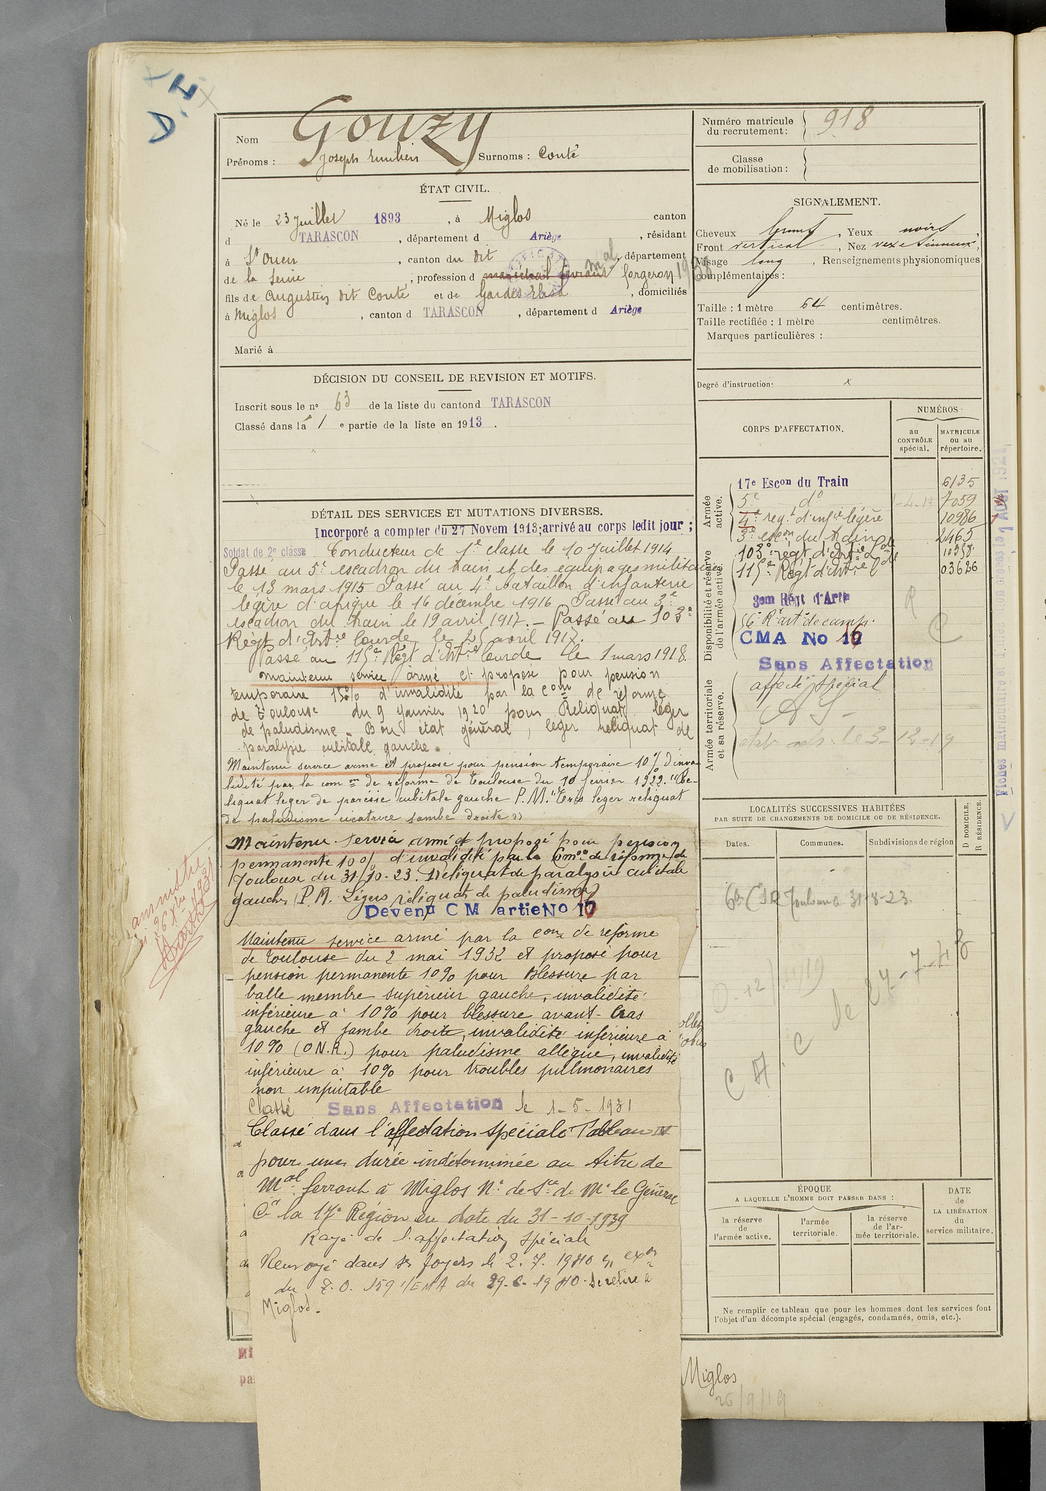 Nom Gouzy
Prénoms : Joseph Emilien Surnoms : Conté
ÉTAT CIVIL.
Né le 23 Juillet 1893, à Miglos canton
d TARASCON, département d Ariège, résidant
à St Ouen, canton du dit, département
de la Seine, profession de maréchal ferrant mal forgeron
fils de Augustin dit Conté et de Gardes Elisa, domiciliés
à Miglos, canton d TARASCON, département d Ariège
Marié à
DÉCISION DU CONSEIL DE REVISION ET MOTIFS.
Inscrit sous le no 63 de la liste du canton d TARASCON
Classé dans la 1 e partie de la liste en 1913.
DÉTAIL DES SERVICES ET MUTATIONS DIVERSES.
Incorporé a compter du 27 Novem 1913; arrivé au corps ledit jour;
Soldat de 2e classe Conducteur de 1e classe le 10 Juillet 1914
Passé au 5e escadron du train et des équipages militaires
le 13 mars 1915 Passé au 4e bataillon d'infanterie
légère d'afrique le 16 décembre 1916 Passé au 3e
escadron du train le 19 avril 1917. – Passé au 103e
Régt d'Artie lourde le 25 avril 1917.
Passé au 115e Régt d'Artie lourde le 1 mars 1918
Maintenu service armé et proposé pour pension
temporaire 15% d'invalidité par la com de réforme
de Toulouse du 9 Janvier 1920 pour Reliquat léger
de paludisme. Bon état général, léger reliquat de
paralysie cubitale gauche.
Maintenu service armé et proposé pour pension temporaire 10% d'inva
lidité par la com on de réforme de Toulouse du 10 février 1922. "Re-
liquat leger de parésie cubitale gauche P.M. "Très leger reliquat
de paludisme cicatrice jambe droite"
Maintenu service armé et proposé pour pension
permanente 10% d'invalidité par la Con de réforme de
Toulouse du 31/10-23. Reliquat de paralysie cubitale
gauche, P.M. Légers reliquat de paludisme
Devenu C M artie No 17
Maintenu service armé par la com de réforme
de Toulouse du 2 mai 1932 et proposé pour
pension permanente 10% pour Blessure par
balle membre supérieur gauche, invalidité
inférieure à 10% pour blessure avant-bras
gauche et jambe droite, invalidité inférieure à
10% (O.N.R.) pour paludisme allégué, invalidité
inférieure à 10% pour troubles pulmonaires
non imputable
Classé Sans Affectation le 1-5-1931
Classé dans l'affectation spéciale Tableau IV
pour une durée indéterminée au titre de
Mal ferrant à Miglos No de Sce de Mr le Général
Ct la 17e Région en date du 31-10-1939
Rayé de l'affectation spéciale
Renvoyé dans ses foyers le 2.7.1940 en exon
du T.O. 159 1/EMA du 29-6-1940. Se retire à
Miglos.
Numéro matricule du recrutement : 918
Classe de mobilisation :
SIGNALEMENT.
Cheveux bruns, Yeux noirs
Front vertical, Nez vexe sinueux,
Visage long, Renseignements physionomiques
complémentaires :
Taille : 1 mètre 64 centimètres.
Taille rectifiée : 1 mètre centimètres.
Marques particulières :
Degré d'instruction : x
CORPS D'AFFECTATION.
NUMÉROS
au CONTRÔLE spécial.
MATRICULE ou au répertoire.
Armée active.
Disponibilité et réserve de l'armée active.
Armée territoriale et sa réserve.
17e Escon du Train 6135
5e do 7059
4e regt d'infie légère 10986
3e escon du train 2465
103e regt d'Artie Lde
115e Régt d'Artie Lde 03626
3em Régt d'Arte
56e Rt art de camp.
CMA No 17
Sans Affectation
affecté spécial
R
C
LOCALITÉS SUCCESSIVES HABITÉES
PAR SUITE DE CHANGEMENTS DE DOMICILE OU DE RÉSIDENCE.
Dates. Communes. Subdivisions de région
D DOMICILE.
R RÉSIDENCE.
Toulouse 31-8-23.
C A. C le 27-7-
ÉPOQUE
A LAQUELLE L'HOMME DOIT PASSER DANS :
la réserve de l'armée active.
l'armée territoriale.
la réserve de l'armée territoriale.
DATE de LA LIBÉRATION du service militaire.
Ne remplir ce tableau que pour les hommes dont les services font
l'objet d'un décompte spécial (engagés, condamnés, omis, etc.).
Miglos
26/9/19